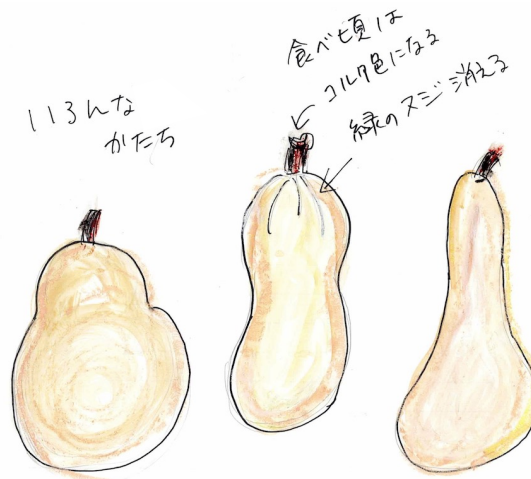 いろんな
かたち
食べ頃は
コルク色になる
緑のスジ消える